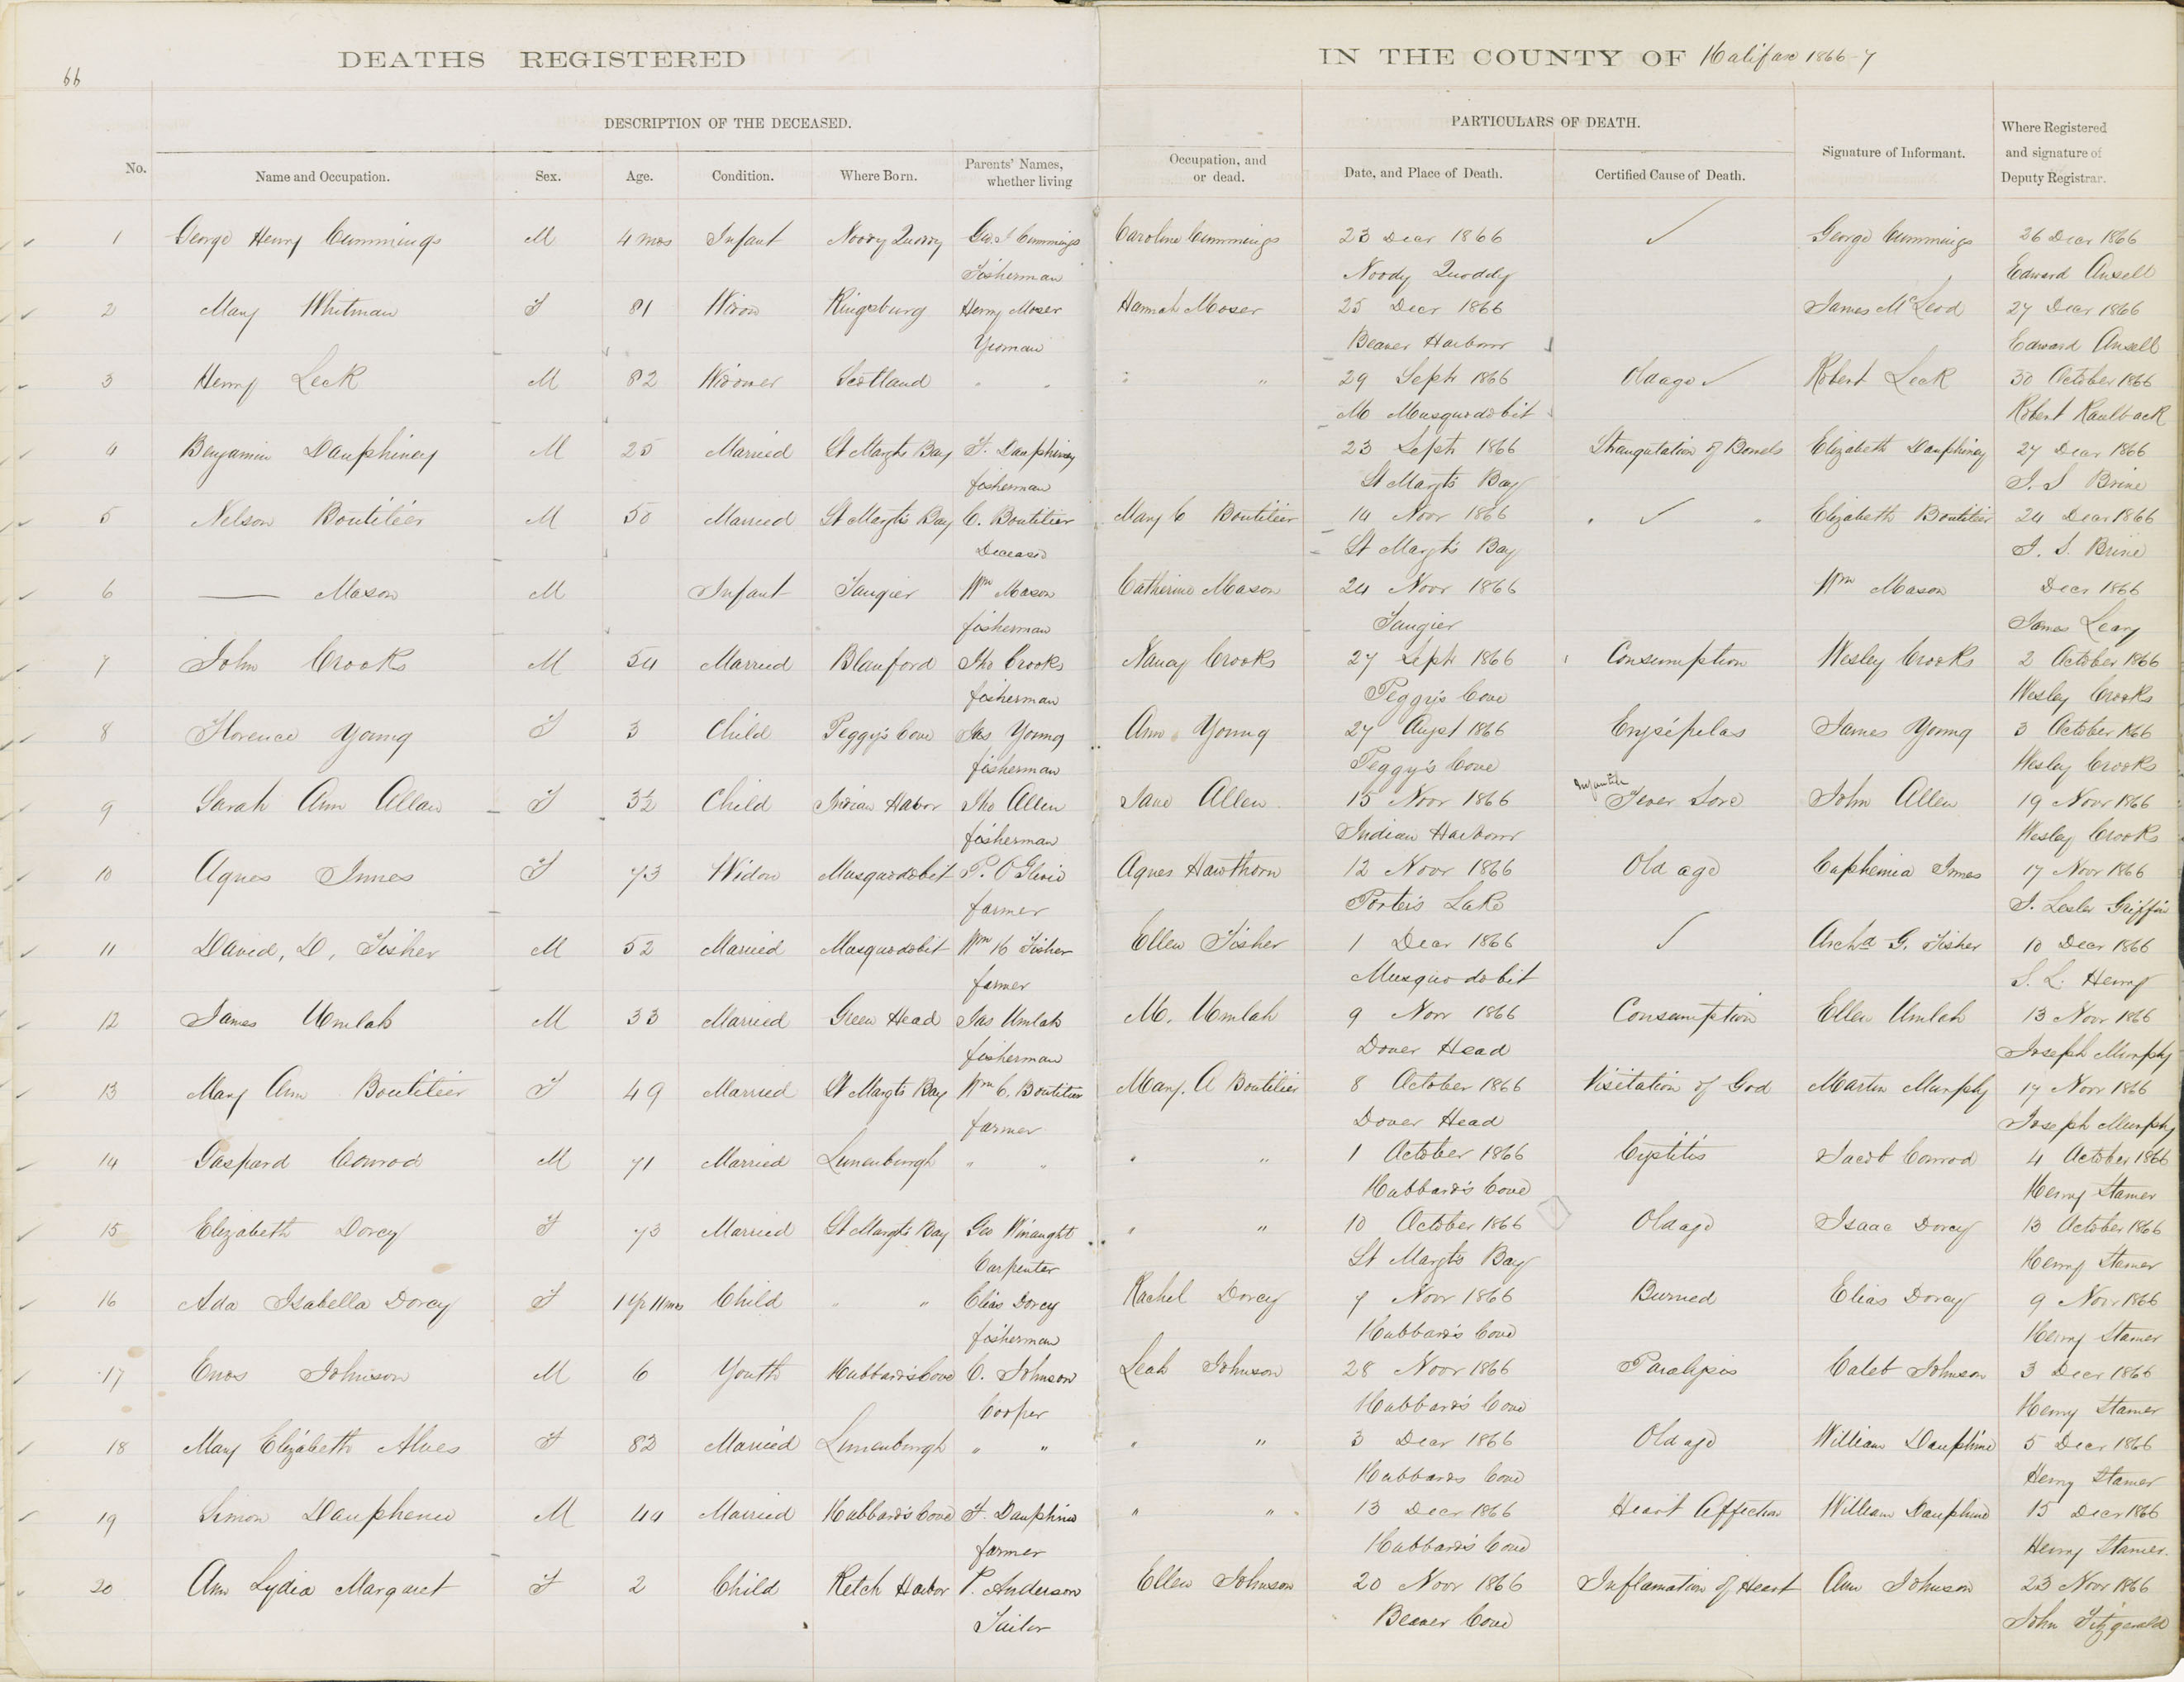 66
DEATHS REGISTERED IN THE COUNTY OF Halifax 1866-7
DESCRIPTION OF THE DECEASED. PARTICULARS OF DEATH.
No. Name and Occupation. Sex. Age. Condition. Where Born. Parents' Names, whether living Occupation, and or dead. Date, and Place of Death. Certified Cause of Death. Signature of Informant. Where Registered and signature of Deputy Registrar.
1 George Henry Cummings M 4 mos Infant Noody Quoddy Geo. Cummings Caroline Cummings 23 Decr 1866 ✓ George Cummings 26 Decr 1866
Fisherman Noody Quoddy Edward Ansell
2 Mary Whitman F 81 Widow Kingsburg Henry Moser Hannah Moser 25 Decr 1866 James McLeod 27 Decr 1866
Yeoman Beaver Harbour Edward Ansell
3 Henry Leek M 82 Widower Scotland " " " " 29 Sept 1866 Old age ✓ Robert Leek 30 October 1866
M Musquodobit Robert Kaulback
4 Benjamin Dauphiney M 25 Married St Margts Bay F. Dauphiney 23 Sept 1866 Strangulation of Bowels Elizabeth Dauphiney 27 Decr 1866
fisherman St Margts Bay J. S Brine
5 Nelson Boutilier M 50 Married St Margts Bay C. Boutilier Mary C Boutilier 14 Novr 1866 ✓ Elizabeth Boutilier 24 Decr 1866
Deceased St Margts Bay J. S. Brine
6 —— Mason M Infant Tangier Wm Mason Catherine Mason 24 Novr 1866 Wm Mason Decr 1866
fisherman Tangier James Leary
7 John Crooks M 54 Married Blanford Jno Crooks Nancy Crooks 27 Sept 1866 Consumption Wesley Crooks 2 October 1866
fisherman Peggy's Cove Wesley Crooks
8 Florence Young F 3 Child Peggy's Cove Jas Young Ann Young 27 Augst 1866 Erysipelas James Young 3 October 1866
fisherman Peggy's Cove Wesley Crooks
9 Sarah Ann Allan F 3½ Child Indian Habor Jno Allen Jane Allen 15 Novr 1866 Infantile Fever Sore John Allen 19 Novr 1866
fisherman Indian Harbour Wesley Crooks
10 Agnes Innes F 73 Widow Musquodobit P. Agnes Hawthorn 12 Novr 1866 Old age Euphemia Innes 17 Novr 1866
farmer Porter's Lake Lesler Griffin
11 David, D, Fisher M 52 Married Musquodobit Wm H Fisher Ellen Fisher 1 Decr 1866 ✓ Archd G. Fisher 10 Decr 1866
farmer Musquodobit S. L. Henry
12 James Umlah M 33 Married Green Head Jas Umlah M. Umlah 9 Novr 1866 Consumption Ellen Umlah 13 Novr 1866
fisherman Dover Head Joseph Murphy
13 Mary Ann Boutilier F 49 Married St Margts Bay Wm C. Boutilier Mary. A Boutilier 8 October 1866 Visitation of God Martin Murphy 17 Novr 1866
farmer Dover Head Joseph Murphy
14 Gaspard Conrod M 71 Married Lunenburgh " " " " 1 October 1866 Cystitis Jacob Conrod 4 October 1866
Hubbard's Cove Henry Stamer
15 Elizabeth Dorey F 73 Married St Margts Bay Geo Winaught " " 10 October 1866 Old age Isaac Dorey 13 October 1866
Carpenter St Margts Bay Henry Stamer
16 Ada Isabella Dorey F 1 yr 11 mos Child " " Elias Dorey Rachel Dorey 7 Novr 1866 Burned Elias Dorey 9 Novr 1866
fisherman Hubbard's Cove Henry Stamer
17 Enos Johnson M 6 Youth Hubbard's Cove C. Johnson Leah Johnson 28 Novr 1866 Paralysis Caleb Johnson 3 Decr 1866
Cooper Hubbard's Cove Henry Stamer
18 Mary Elizabeth Alves F 82 Married Lunenburgh " " " " 3 Decr 1866 Old age William Dauphine 5 Decr 1866
Hubbards Cove Henry Stamer
19 Simon Dauphenee M 44 Married Hubbard's Cove F. Dauphine " " 13 Decr 1866 Heart Affection William Dauphine 15 Decr 1866
farmer Hubbard's Cove Henry Stamer.
20 Ann Lydia Margaret F 2 Child Ketch Harbor P. Anderson Ellen Johnson 20 Novr 1866 Inflamation of Heart Ann Johnson 23 Novr 1866
Tailor Beaver Cove John Fitzgerald